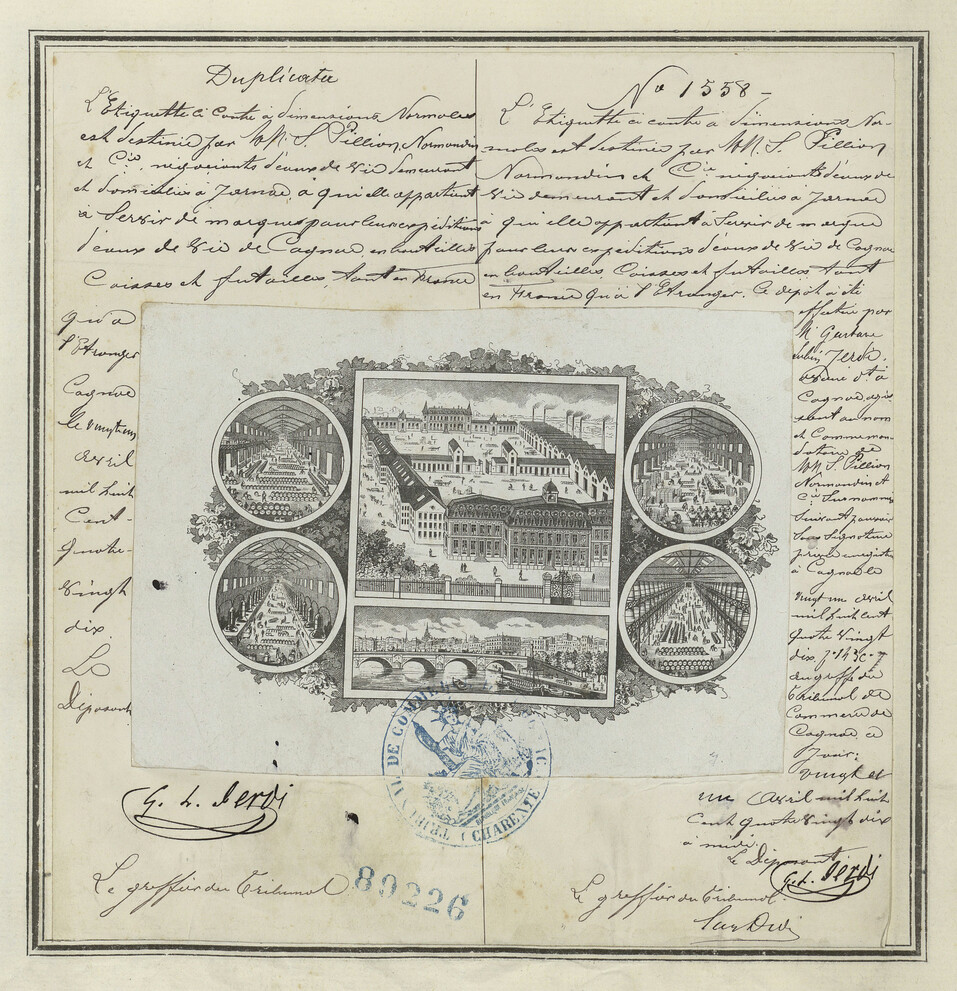 Duplicata
L'Etiquette ci contre à dimensions Normales
est destinée par MM. S. Pillion, Normandin
et Cie, négociants d'eaux de Vie demeurant
et domiciliés à Jarnac, à qui elle appartient
à Servir de marques pour leurs expéditions
d'eaux de Vie de Cognac, en bouteilles
Caisses et futailles, tant en France
qu'à
l'Etranger
Cognac
le vingt un
avril
mil huit
Cent-
quatre-
Vingt
dix.
Le
Déposant
G. L. Jerdi
Le greffier du Tribunal
80226
No 1558-
L'Etiquette ci contre à dimensions Nor-
males est destinée par MM. S. Pillion
Normandin et Cie négociants d'eaux de
Vie demeurant et domiciliés à Jarnac
à qui elle appartient à Servir de marque
pour leurs expéditions d'eaux de Vie de Cognac
en bouteilles Caisses et futailles, tant
en France qu'à l'Etranger. Ce dépôt a été
effectué par
M. Gustave
à
Cognac, agis
sant au nom
et Comme man-
dataire de
MM. S. Pillion
Normandin et
Cie Susnommés
Suivant pouvoir
Sous Signature
privée enregistré
à Cognac le
vingt un avril
mil huit cent
quatre vingt
dix
au greffe du
Tribunal de
Commerce de
Cognac, ce
jour:
vingt et
un Avril mil huit
cent quatre vingt dix
à midi.
Le Déposant
G. L. Jerdi
Le greffier du Tribunal.
TRIBUNAL DE COMMERCE
CHARENTE